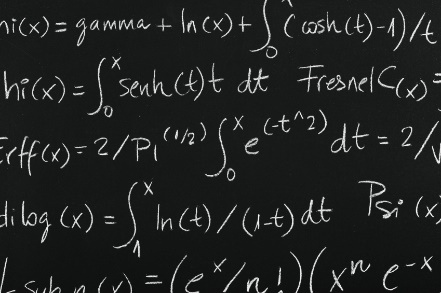 hi(x) = gamma + ln(x) + ∫₀ˣ (cosh(t)-1)/t
hi(x) = ∫₀ˣ senh(t)t dt FresnelC(x) =
Erff(x) = 2/Pi^(1/2) ∫₀ˣ e^(-t^2) dt = 2/√
dilog(x) = ∫₁ˣ ln(t)/(1-t) dt Psi(x)
L sub n (x) = (eˣ/n!)(xⁿ e⁻ˣ